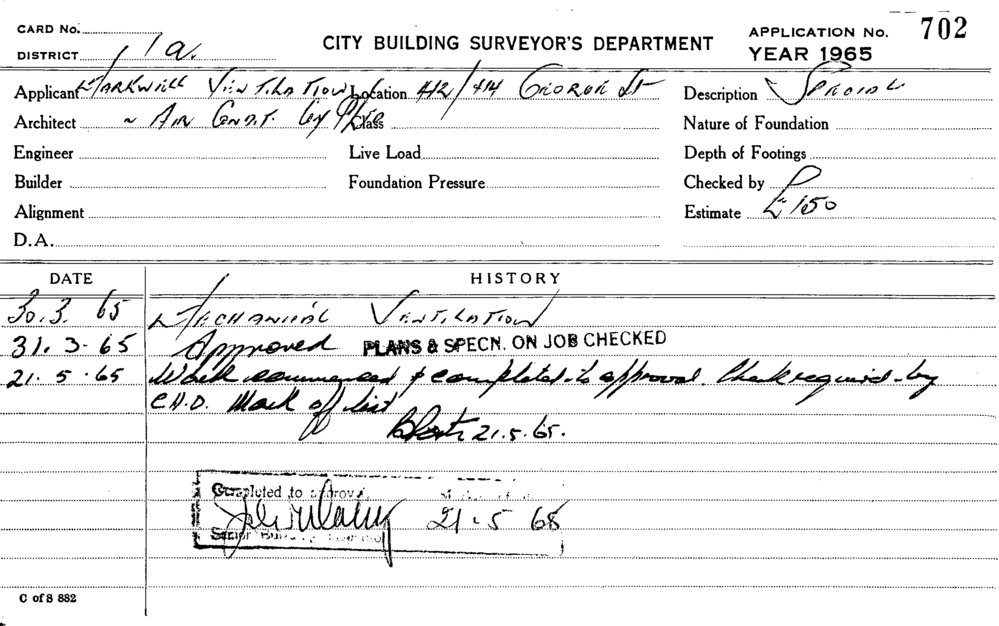 CARD No.
CITY BUILDING SURVEYOR'S DEPARTMENT
APPLICATION No. 702
DISTRICT 1a.
YEAR 1965
Applicant Markwell Ventilation Location 412/414 George St Description Special
Architect ~ Air Condt. Coy P/L Class Nature of Foundation
Engineer Live Load Depth of Footings
Builder Foundation Pressure Checked by
Alignment Estimate £150
D.A.
DATE HISTORY
30.3.65 Mechanical Ventilation
31.3.65 Approved PLANS & SPECN. ON JOB CHECKED
21.5.65 Work commenced & completed to approval. Check required by
C.H.D. Mark off list
21.5.65.
Completed to approval
21.5.65
Senior Building
C of S 882